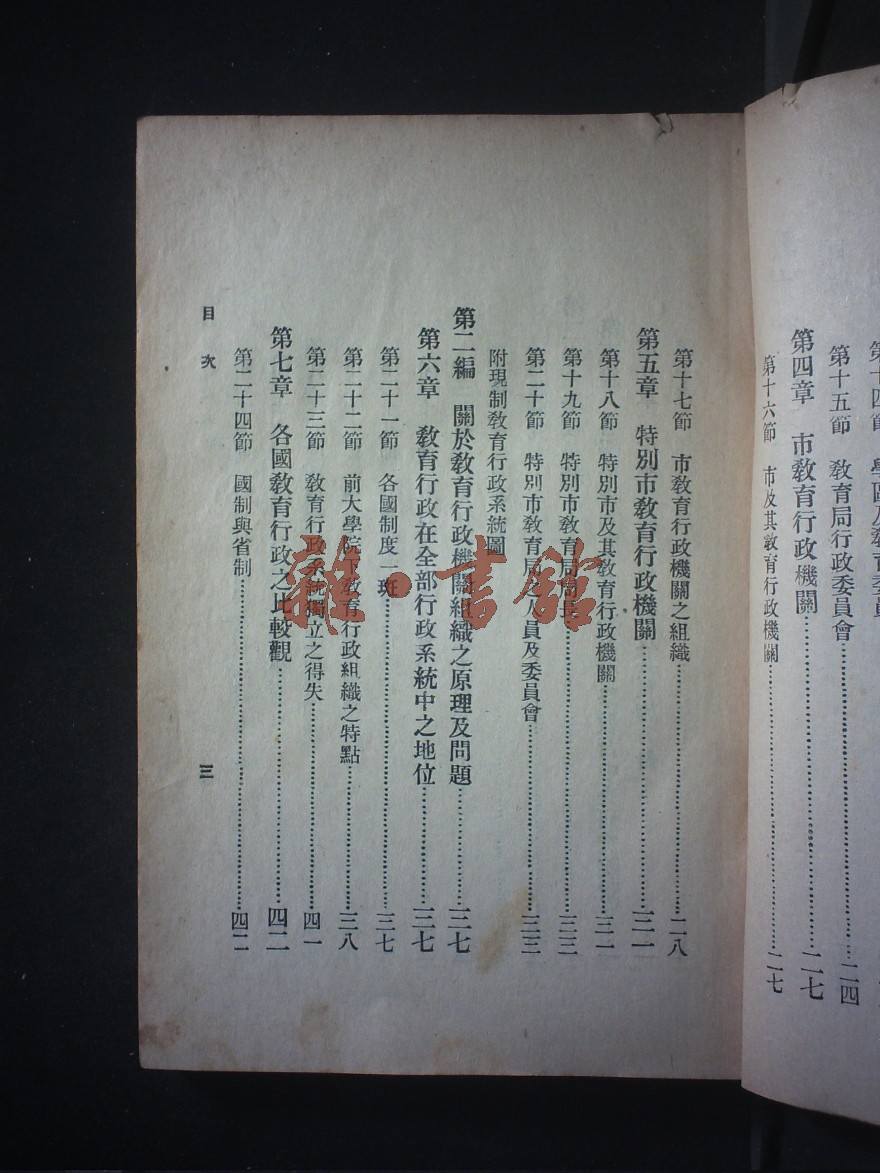 第十四節 學區及教育委員
第十五節 教育局行政委員會……二四
第四章 市教育行政機關……二七
第十六節 市及其教育行政機關……二七
第十七節 市教育行政機關之組織……二八
第五章 特別市教育行政機關……三一
第十八節 特別市及其教育行政機關……三一
第十九節 特別市教育局局長……三三
第二十節 特別市教育局之人員及委員會……三三
附現制教育行政系統圖
第二編 關於教育行政機關組織之原理及問題……三七
第六章 教育行政在全部行政系統中之地位……三七
第二十一節 各國制度一班……三七
第二十二節 前大學院下教育行政組織之特點……三八
第二十三節 教育行政系統獨立之得失……四一
第七章 各國教育行政之比較觀……四二
第二十四節 國制與省制……四二
目次
三
雜·書館